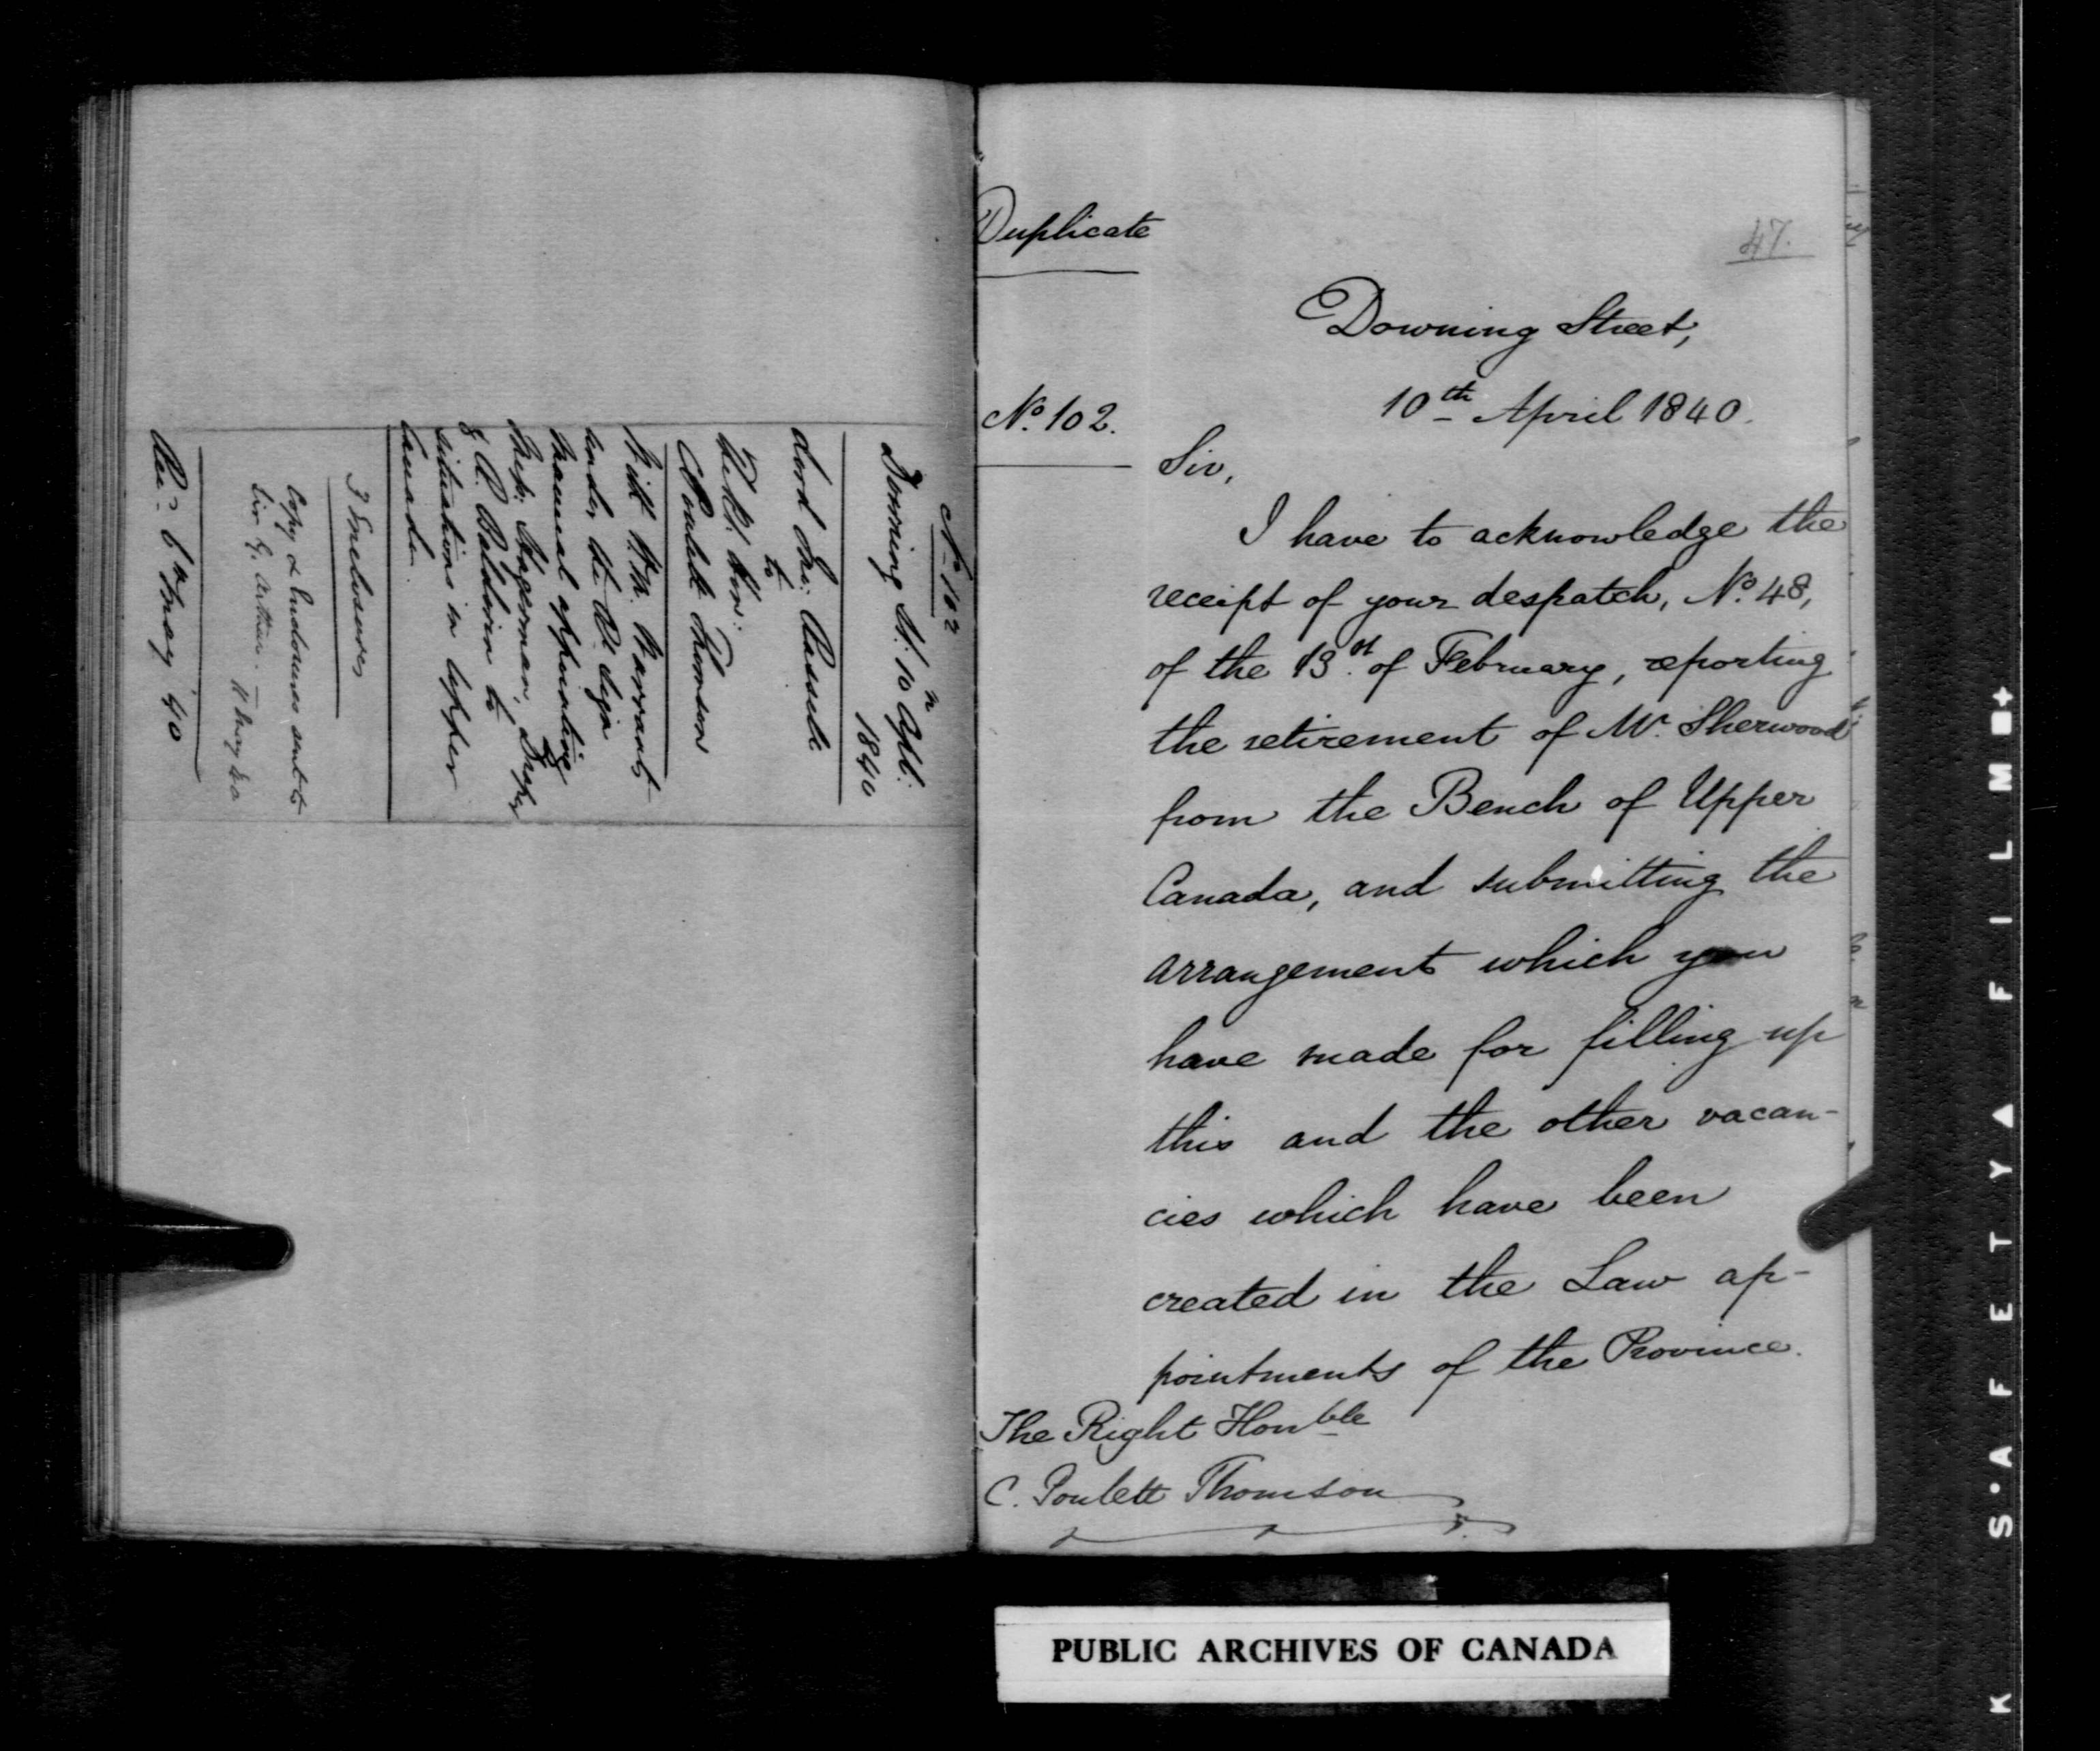 No 102
Downing St. 10th Apl.
1840
Lord Jno. Russell
to
The Rt. Hon:
C Poulett Thomson
With H.M. Warrants
under the R. Sign
manual appointing
Messrs. Hagerman, Draper
& R. Baldwin to
situations in Upper
Canada.
3 Enclosures
Copy & Enclosures sent to
Sir G. Arthur.
Rec. 6 May 40
Duplicate
47.
Downing Street,
No. 102.
10th April 1840.
Sir,
I have to acknowledge the
receipt of your despatch, No. 48,
of the 13th of February, reporting
the retirement of Mr. Sherwood
from the Bench of Upper
Canada, and submitting the
arrangement which you
have made for filling up
this and the other vacan-
cies which have been
created in the Law ap-
pointments of the Province.
The Right Honble
C. Poulett Thomson
PUBLIC ARCHIVES OF CANADA
K S•A F E T Y ▲ F I L M ■ +